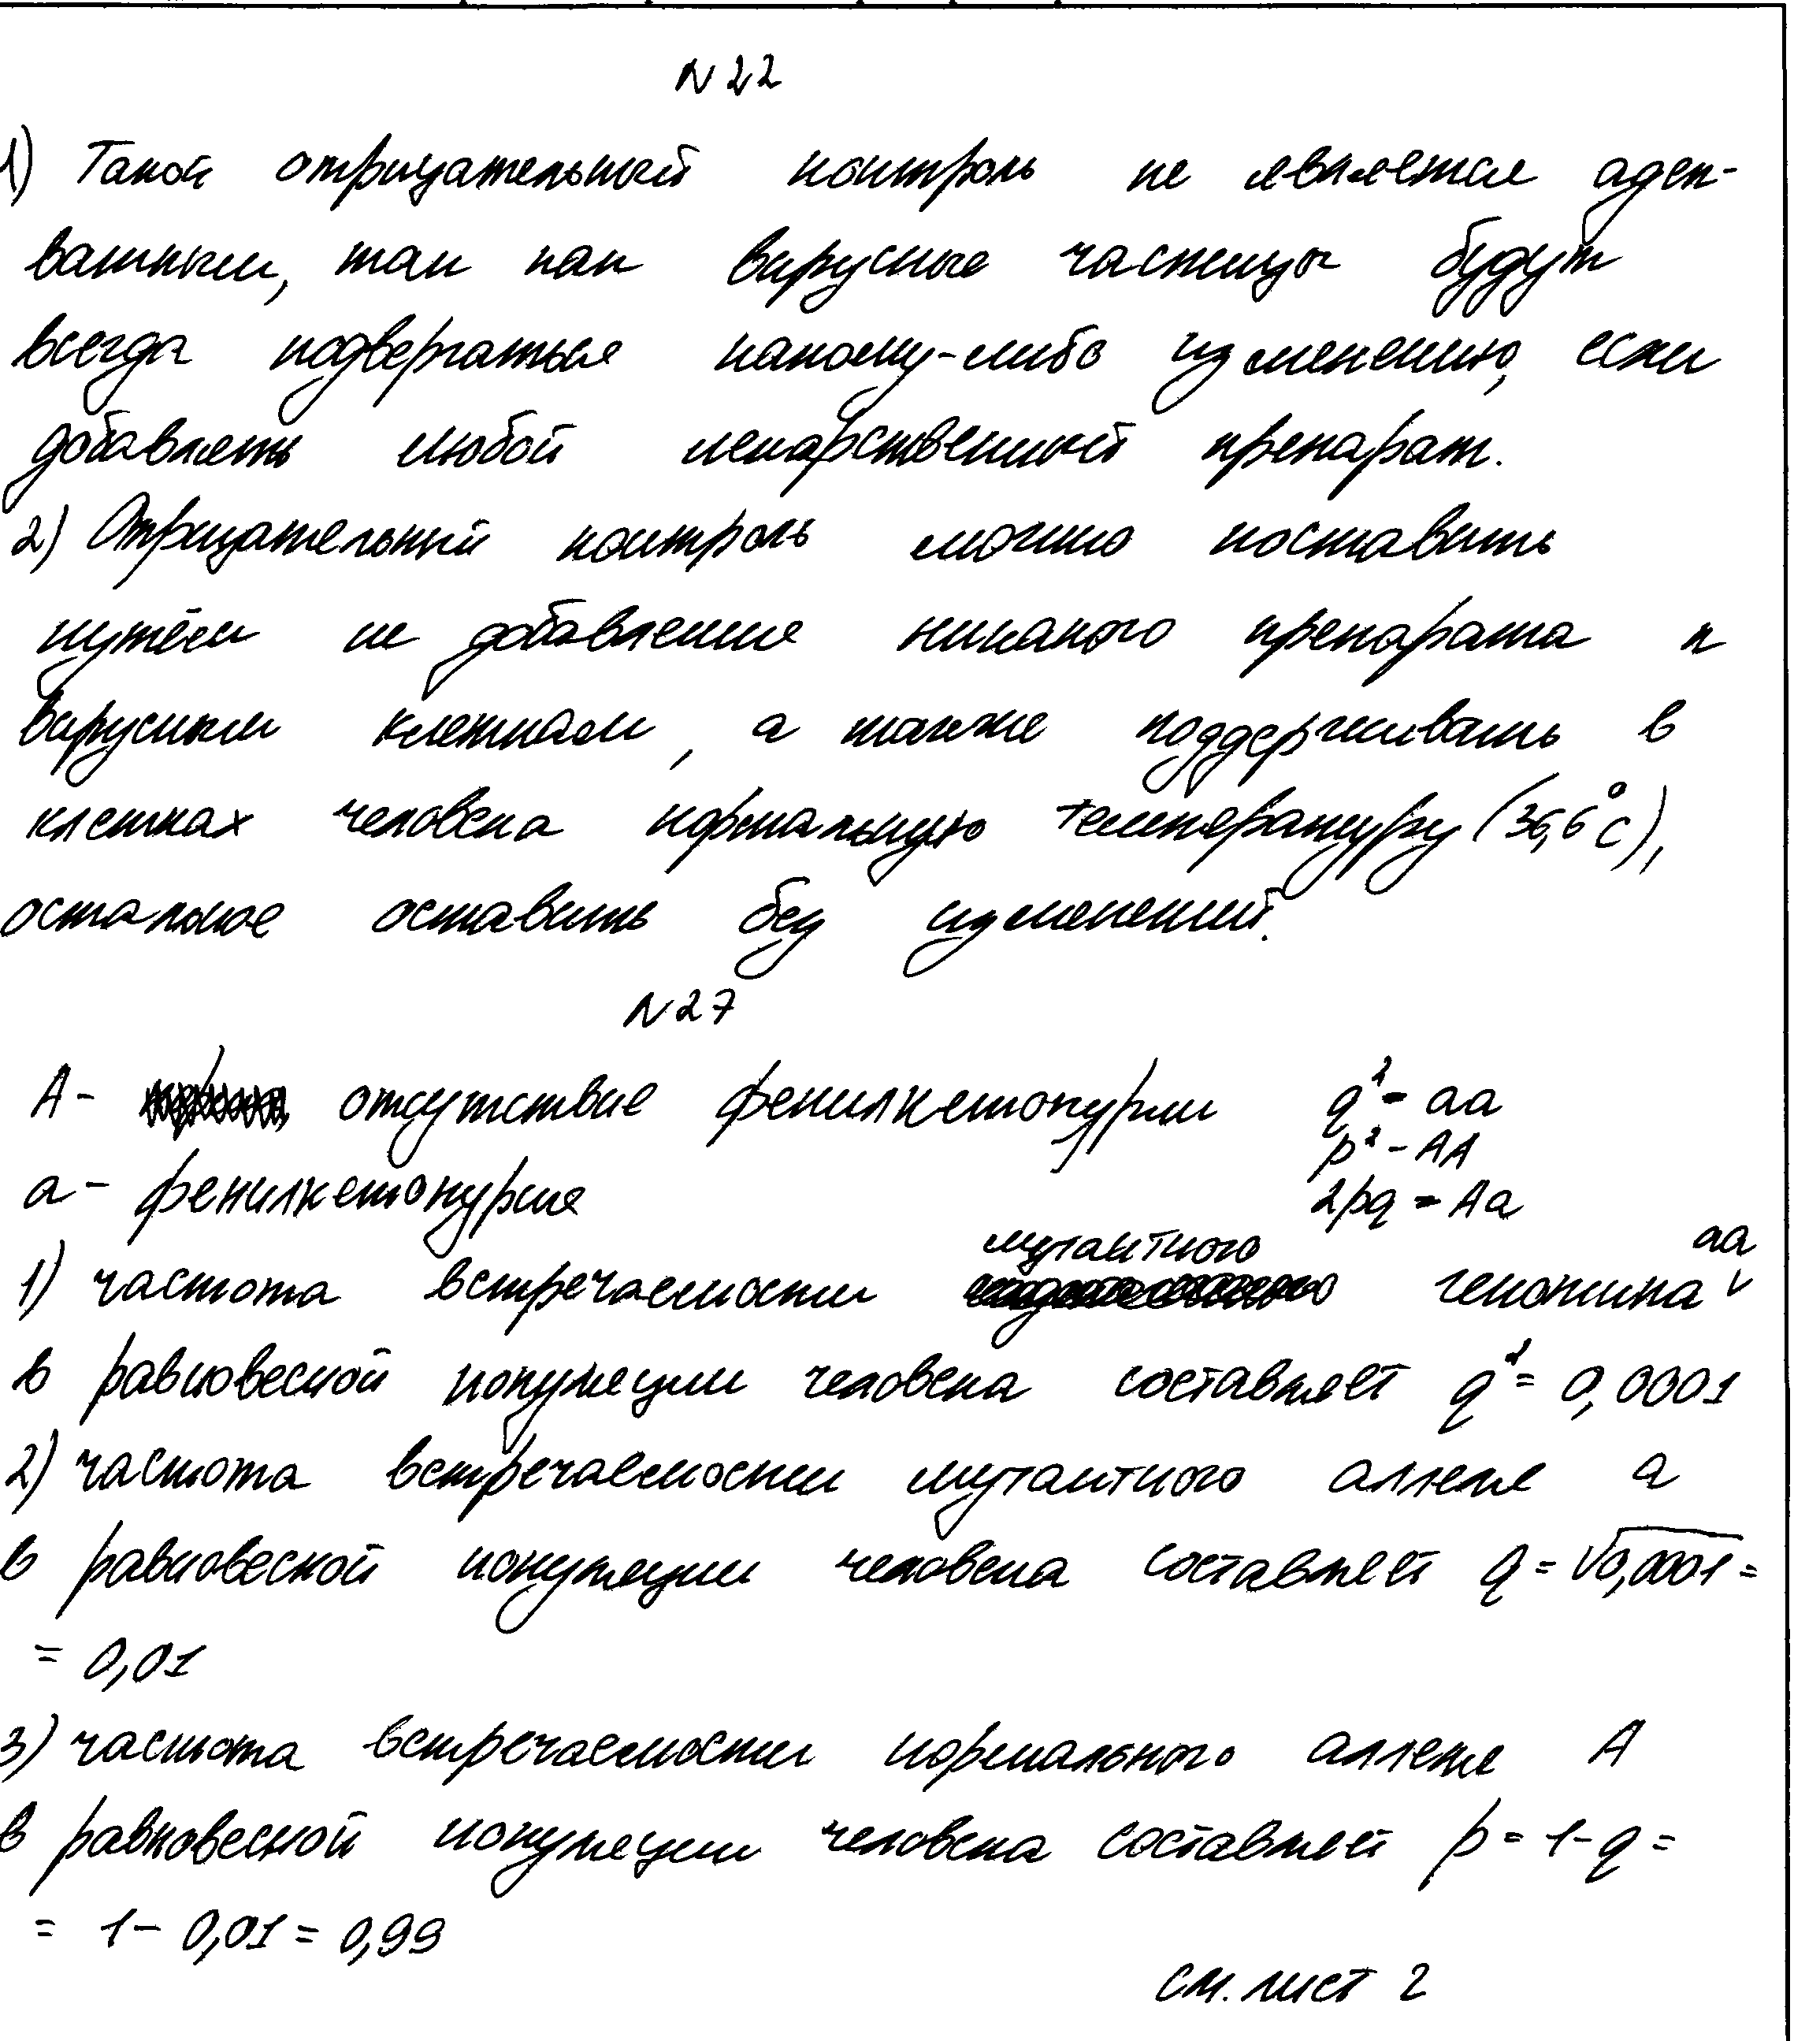 N 22
1) Такой отрицательный контроль не является адек-
ватным, так как вирусные частицы будут
всегда подвергаться какому-либо изменению, если
добавлять любой лекарственный препарат.
2) Отрицательный контроль можно поставить
путём не добавления никакого препарата к
вирусным клеткам, а также поддерживать в
клетках человека нормальную температуру (36,6°C),
остальное оставить без изменений.
N 27
A - отсутствие фенилкетонурии q² - aa
p² - AA
a - фенилкетонурия 2pq - Aa
1) частота встречаемости мутантного генотипа aa
в равновесной популяции человека составляет q² = 0,0001
2) частота встречаемости мутантного аллеля a
в равновесной популяции человека составляет q = √0,0001 =
= 0,01
3) частота встречаемости нормального аллеля A
в равновесной популяции человека составляет p = 1 - q =
= 1 - 0,01 = 0,99
см. лист 2